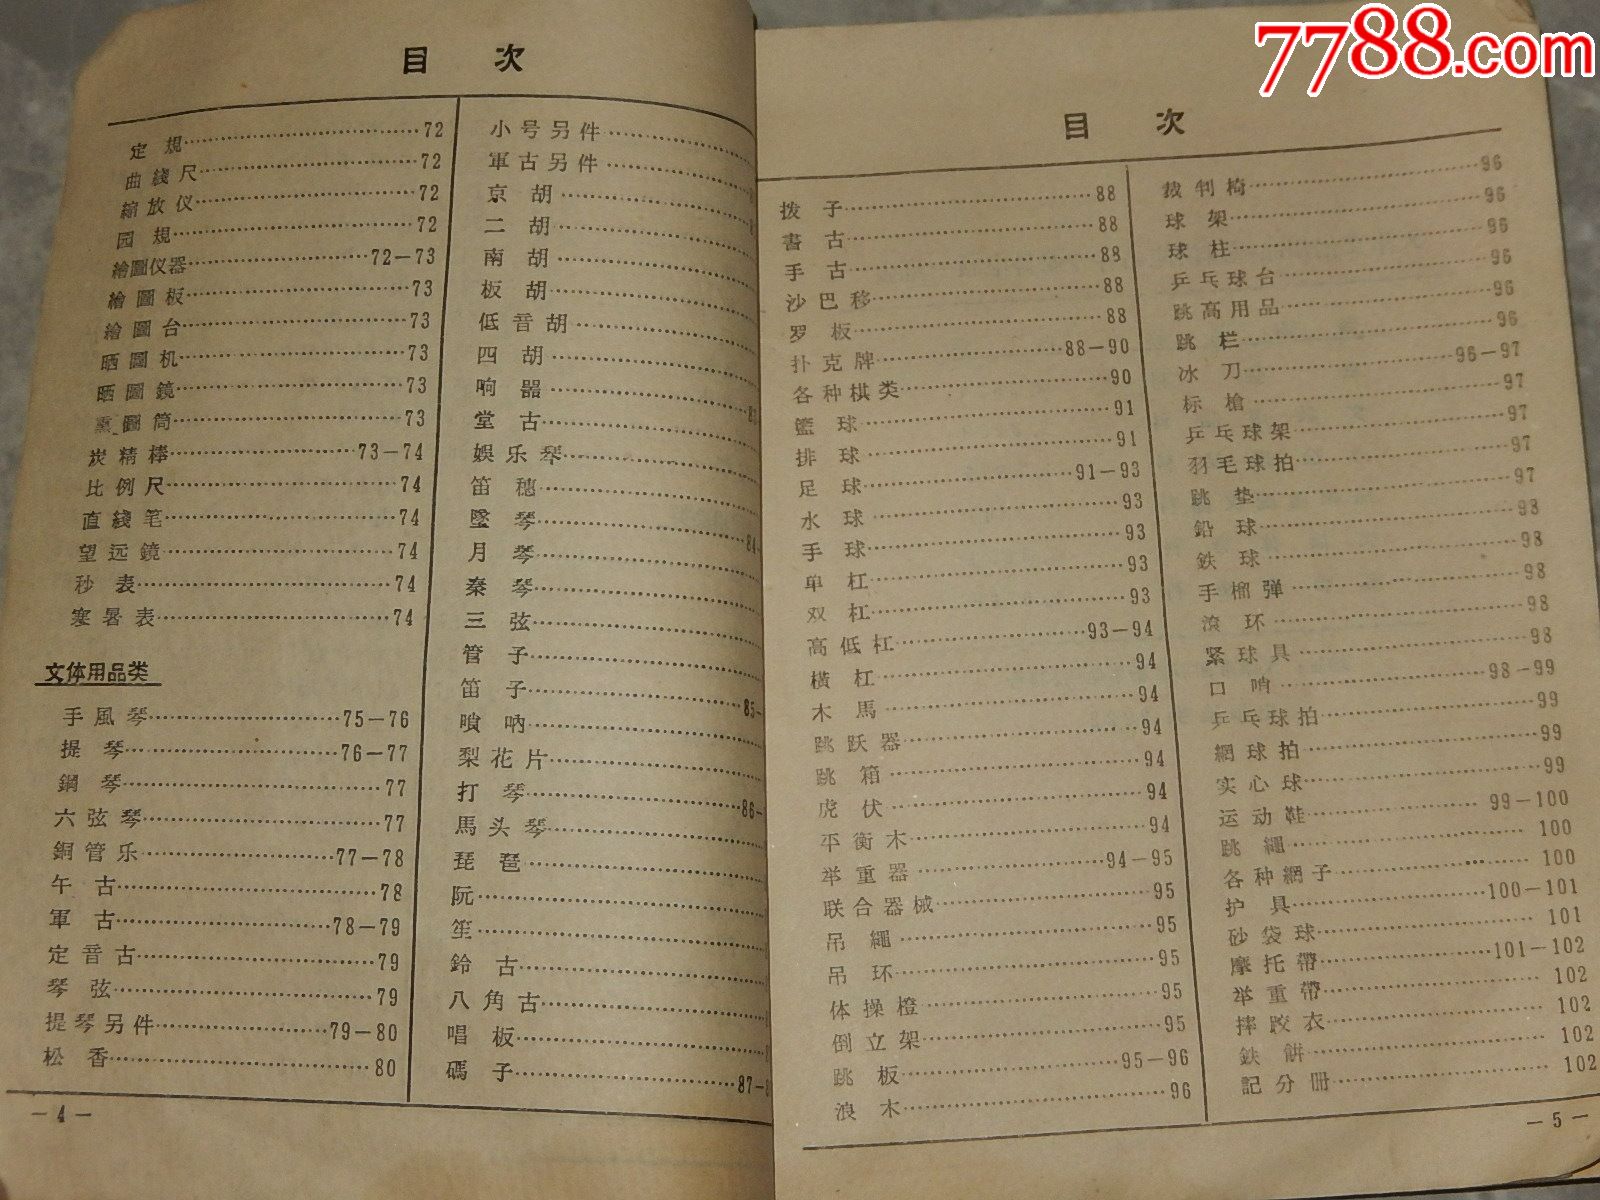 7788.com
目 次
定規……72
曲綫尺……72
縮放仪……72
园規……72
繪圖仪器……72—73
繪圖板……73
繪圖台……73
晒圖机……73
晒圖鏡……73
圖筒……73
炭精棒……73—74
比例尺……74
直綫笔……74
望远鏡……74
秒表……74
寒暑表……74
文体用品类
手風琴……75—76
提琴……76—77
鋼琴……77
六弦琴……77
銅管乐……77—78
午古……78
軍古……78—79
定音古……79
琴弦……79
提琴另件……79—80
松香……80
小号另件……
軍古另件……
京胡……
二胡……
南胡……
板胡……
低音胡……
四胡……
响器……
堂古……
娛乐琴……
笛穗……
墜琴……84—
月琴……
秦琴……
三弦……
管子……
笛子……85—
嗩吶……
梨花片……
打琴……86—
馬头琴……
琵琶……
阮……
笙……
鈴古……
八角古……
唱板……
碼子……87—
— 4 —
目 次
拨子……88
書古……88
手古……88
沙巴移……88
罗板……88
扑克牌……88—90
各种棋类……90
籃球……91
排球……91
足球……91—93
水球……93
手球……93
单杠……93
双杠……93
高低杠……93—94
橫杠……94
木馬……94
跳跃器……94
跳箱……94
虎伏……94
平衡木……94
举重器……94—95
联合器械……95
吊繩……95
吊环……95
体操橙……95
倒立架……95
跳板……95—96
浪木……96
裁判椅……96
球架……96
球柱……96
乒乓球台……96
跳高用品……96
跳栏……96
冰刀……96—97
标槍……97
乒乓球架……97
羽毛球拍……97
跳垫……97
鉛球……98
鉄球……98
手榴弹……98
滾环……98
紧球具……98
口哨……98—99
乒乓球拍……99
網球拍……99
实心球……99
运动鞋……99—100
跳繩……100
各种網子……100
护具……100—101
砂袋球……101
摩托帶……101—102
举重帶……102
摔跤衣……102
鉄餅……102
記分册……102
— 5 —